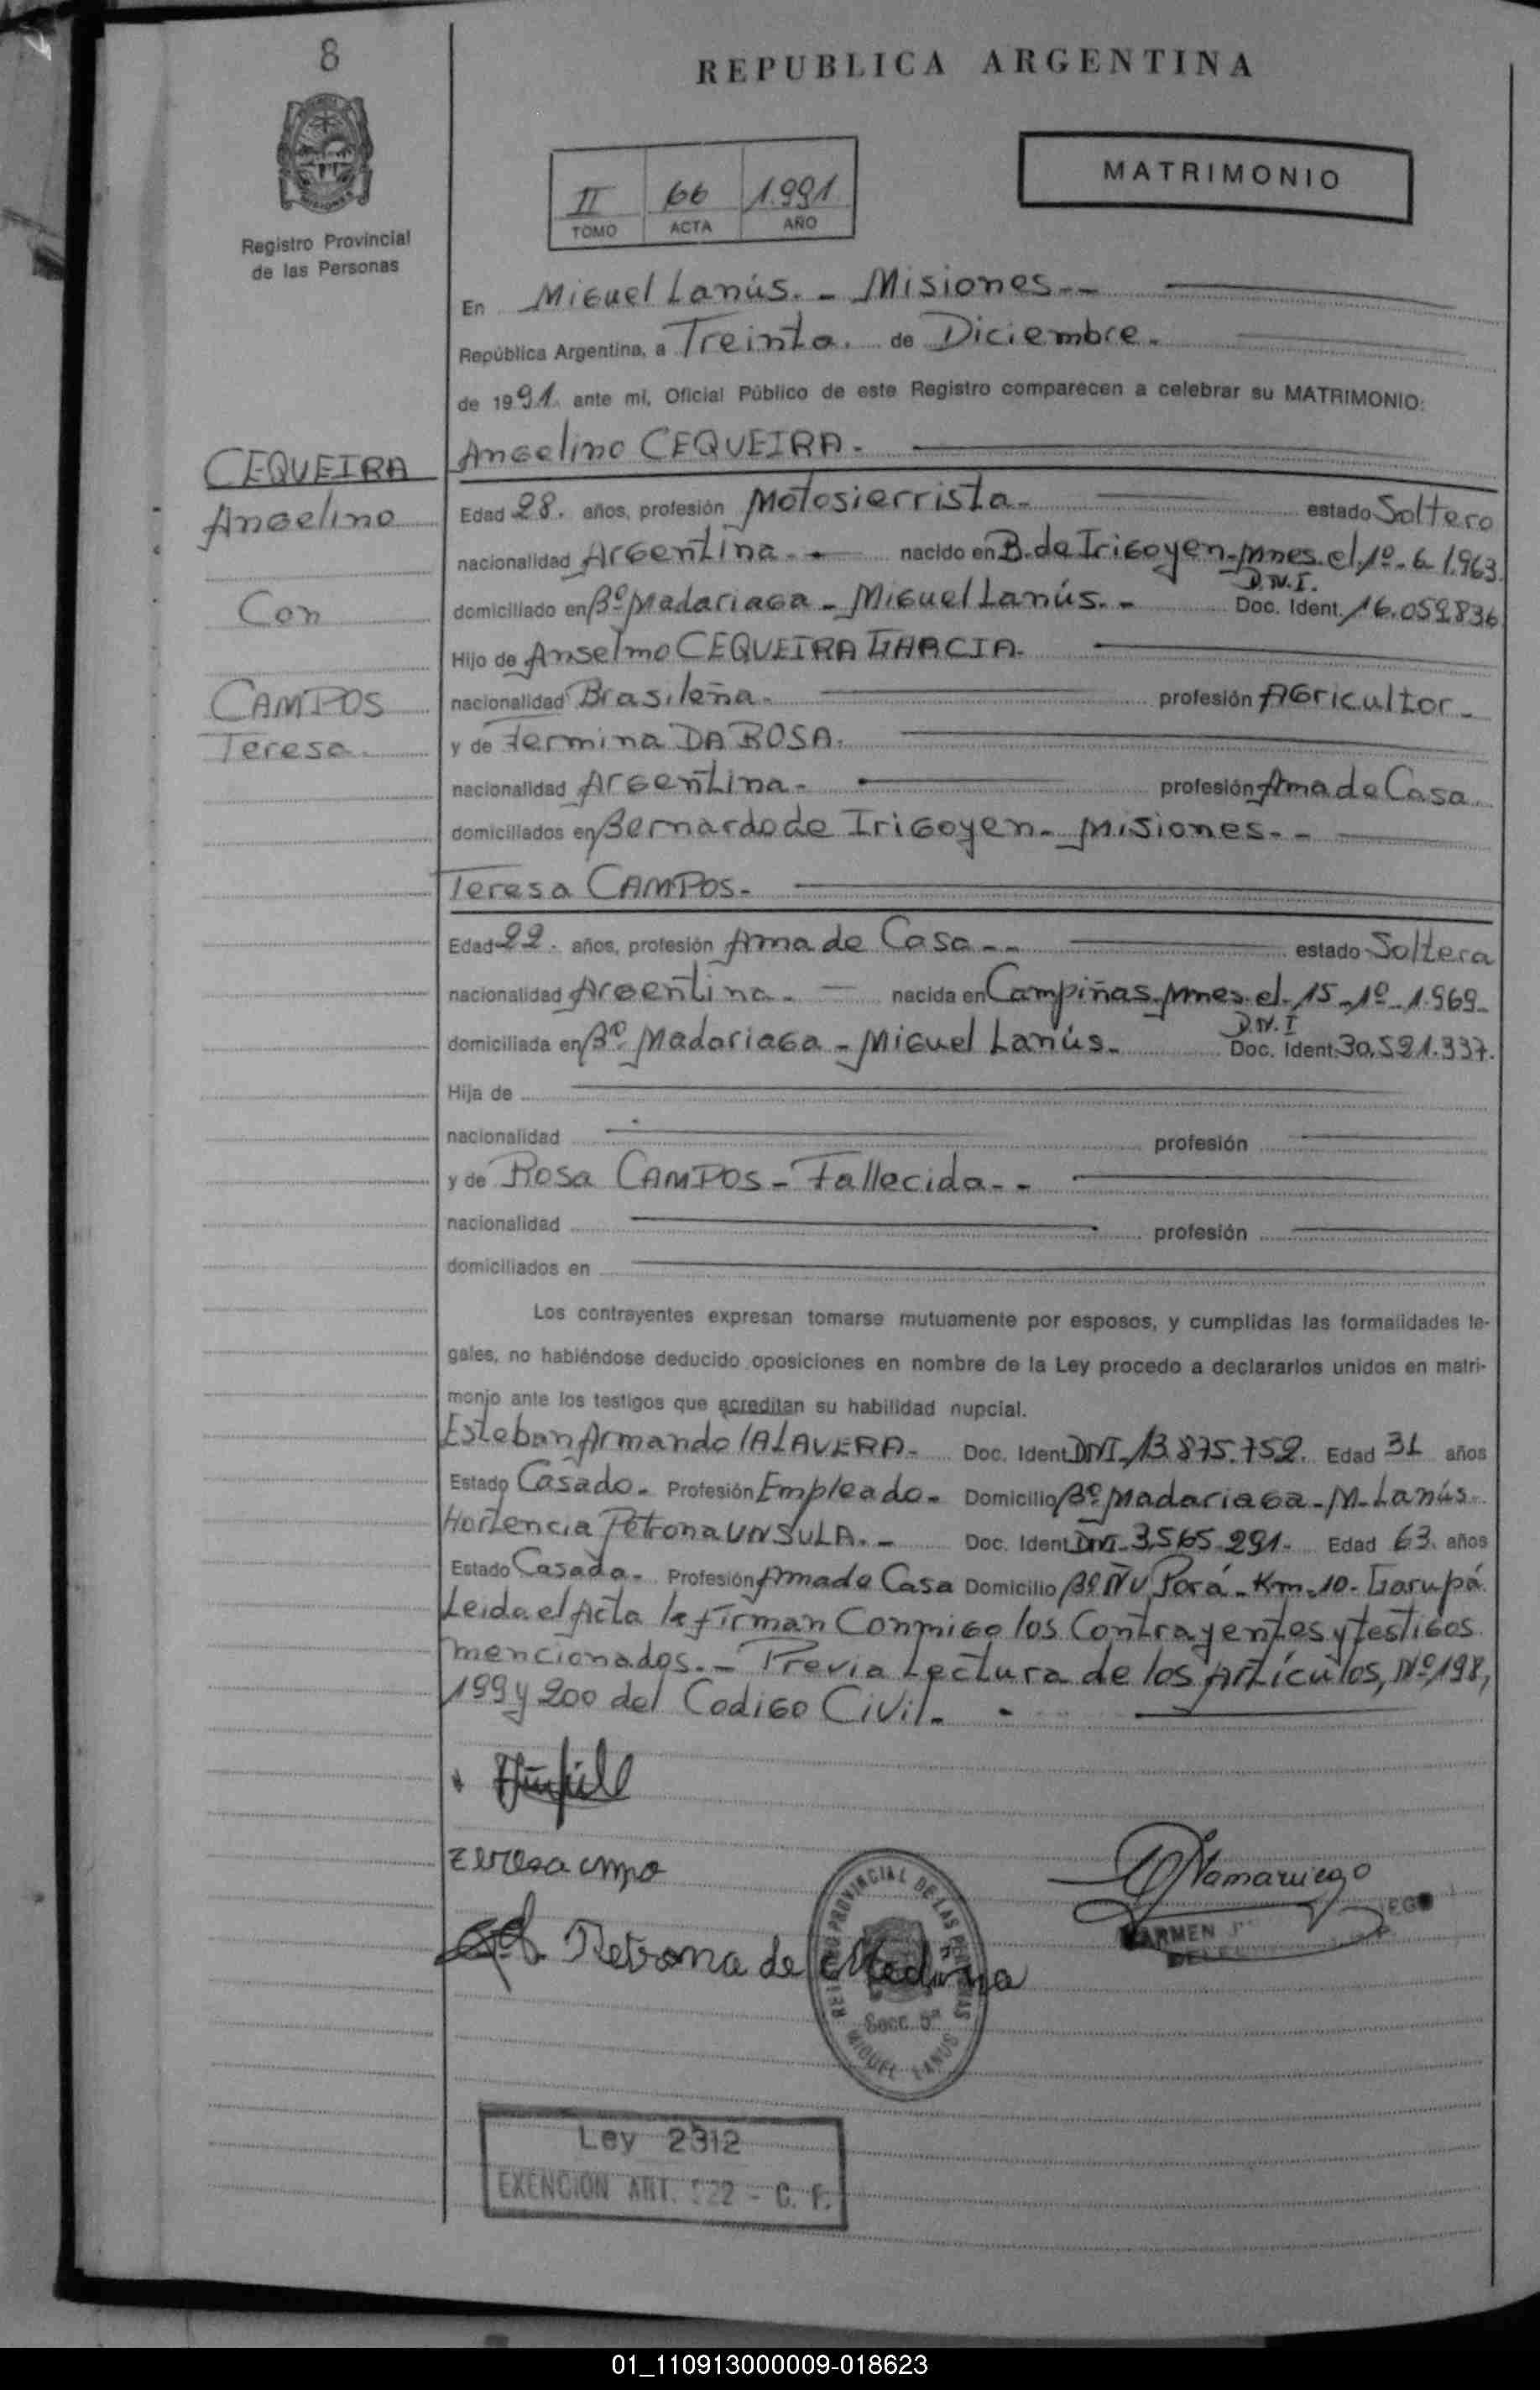 8
REPUBLICA ARGENTINA
MATRIMONIO
II 66 1.991
TOMO ACTA AÑO
Registro Provincial
de las Personas
En Miguel Lanús.- Misiones.-
República Argentina, a Treinta. de Diciembre.
de 1991. ante mi, Oficial Público de este Registro comparecen a celebrar su MATRIMONIO:
CEQUEIRA
Angelino
Con
CAMPOS
Teresa.
Angelino CEQUEIRA.
Edad 28. años, profesión Motosierrista- estado Soltero
nacionalidad Argentina.- nacido en B. de Irigoyen-Mnes. el 1º-6-1.963.
domiciliado en Bº Madariaga - Miguel Lanús.- D.N.I. Doc. Ident. 16.059.836
Hijo de Anselmo CEQUEIRA GHACIA.
nacionalidad Brasileña. profesión Agricultor-
y de Fermina DA ROSA.
nacionalidad Argentina- profesión Ama de Casa
domiciliados en Bernardo de Irigoyen- Misiones.-
Teresa CAMPOS-
Edad 22. años, profesión Ama de Casa.- estado Soltera
nacionalidad Argentina.- nacida en Campiñas-Mnes. el-15-1º-1.969-
domiciliada en Bº Madariaga - Miguel Lanús- D.N.I Doc. Ident. 30.521.337.
Hija de
nacionalidad profesión
y de Rosa CAMPOS - Fallecida.-
nacionalidad profesión
domiciliados en
Los contrayentes expresan tomarse mutuamente por esposos, y cumplidas las formalidades le-
gales, no habiéndose deducido oposiciones en nombre de la Ley procedo a declararlos unidos en matri-
monio ante los testigos que acreditan su habilidad nupcial.
Esteban Armando TALAVERA- Doc. Ident. DNI-13.875.752. Edad 31 años
Estado Casado- Profesión Empleado- Domicilio Bº Madariaga-M-Lanús-
Hortencia Petrona UNSULA.- Doc. Ident. DNI-3.565.291- Edad 63. años
Estado Casada- Profesión Ama de Casa Domicilio Bº Ñu Porá-Km-10-Garupá
Leida el Acta la firman Conmigo los Contrayentes y testigos
mencionados.- Previa Lectura de los Artículos, Nº 198,
199 y 200 del Codigo Civil-
teresa cmpo
Petrona de Medina
REGISTRO PROVINCIAL DE LAS PERSONAS
Secc. 5ª
MIGUEL LANUS
CARMEN
Ley 2312
EXENCION ART. 222 - C. F.
01_110913000009-018623